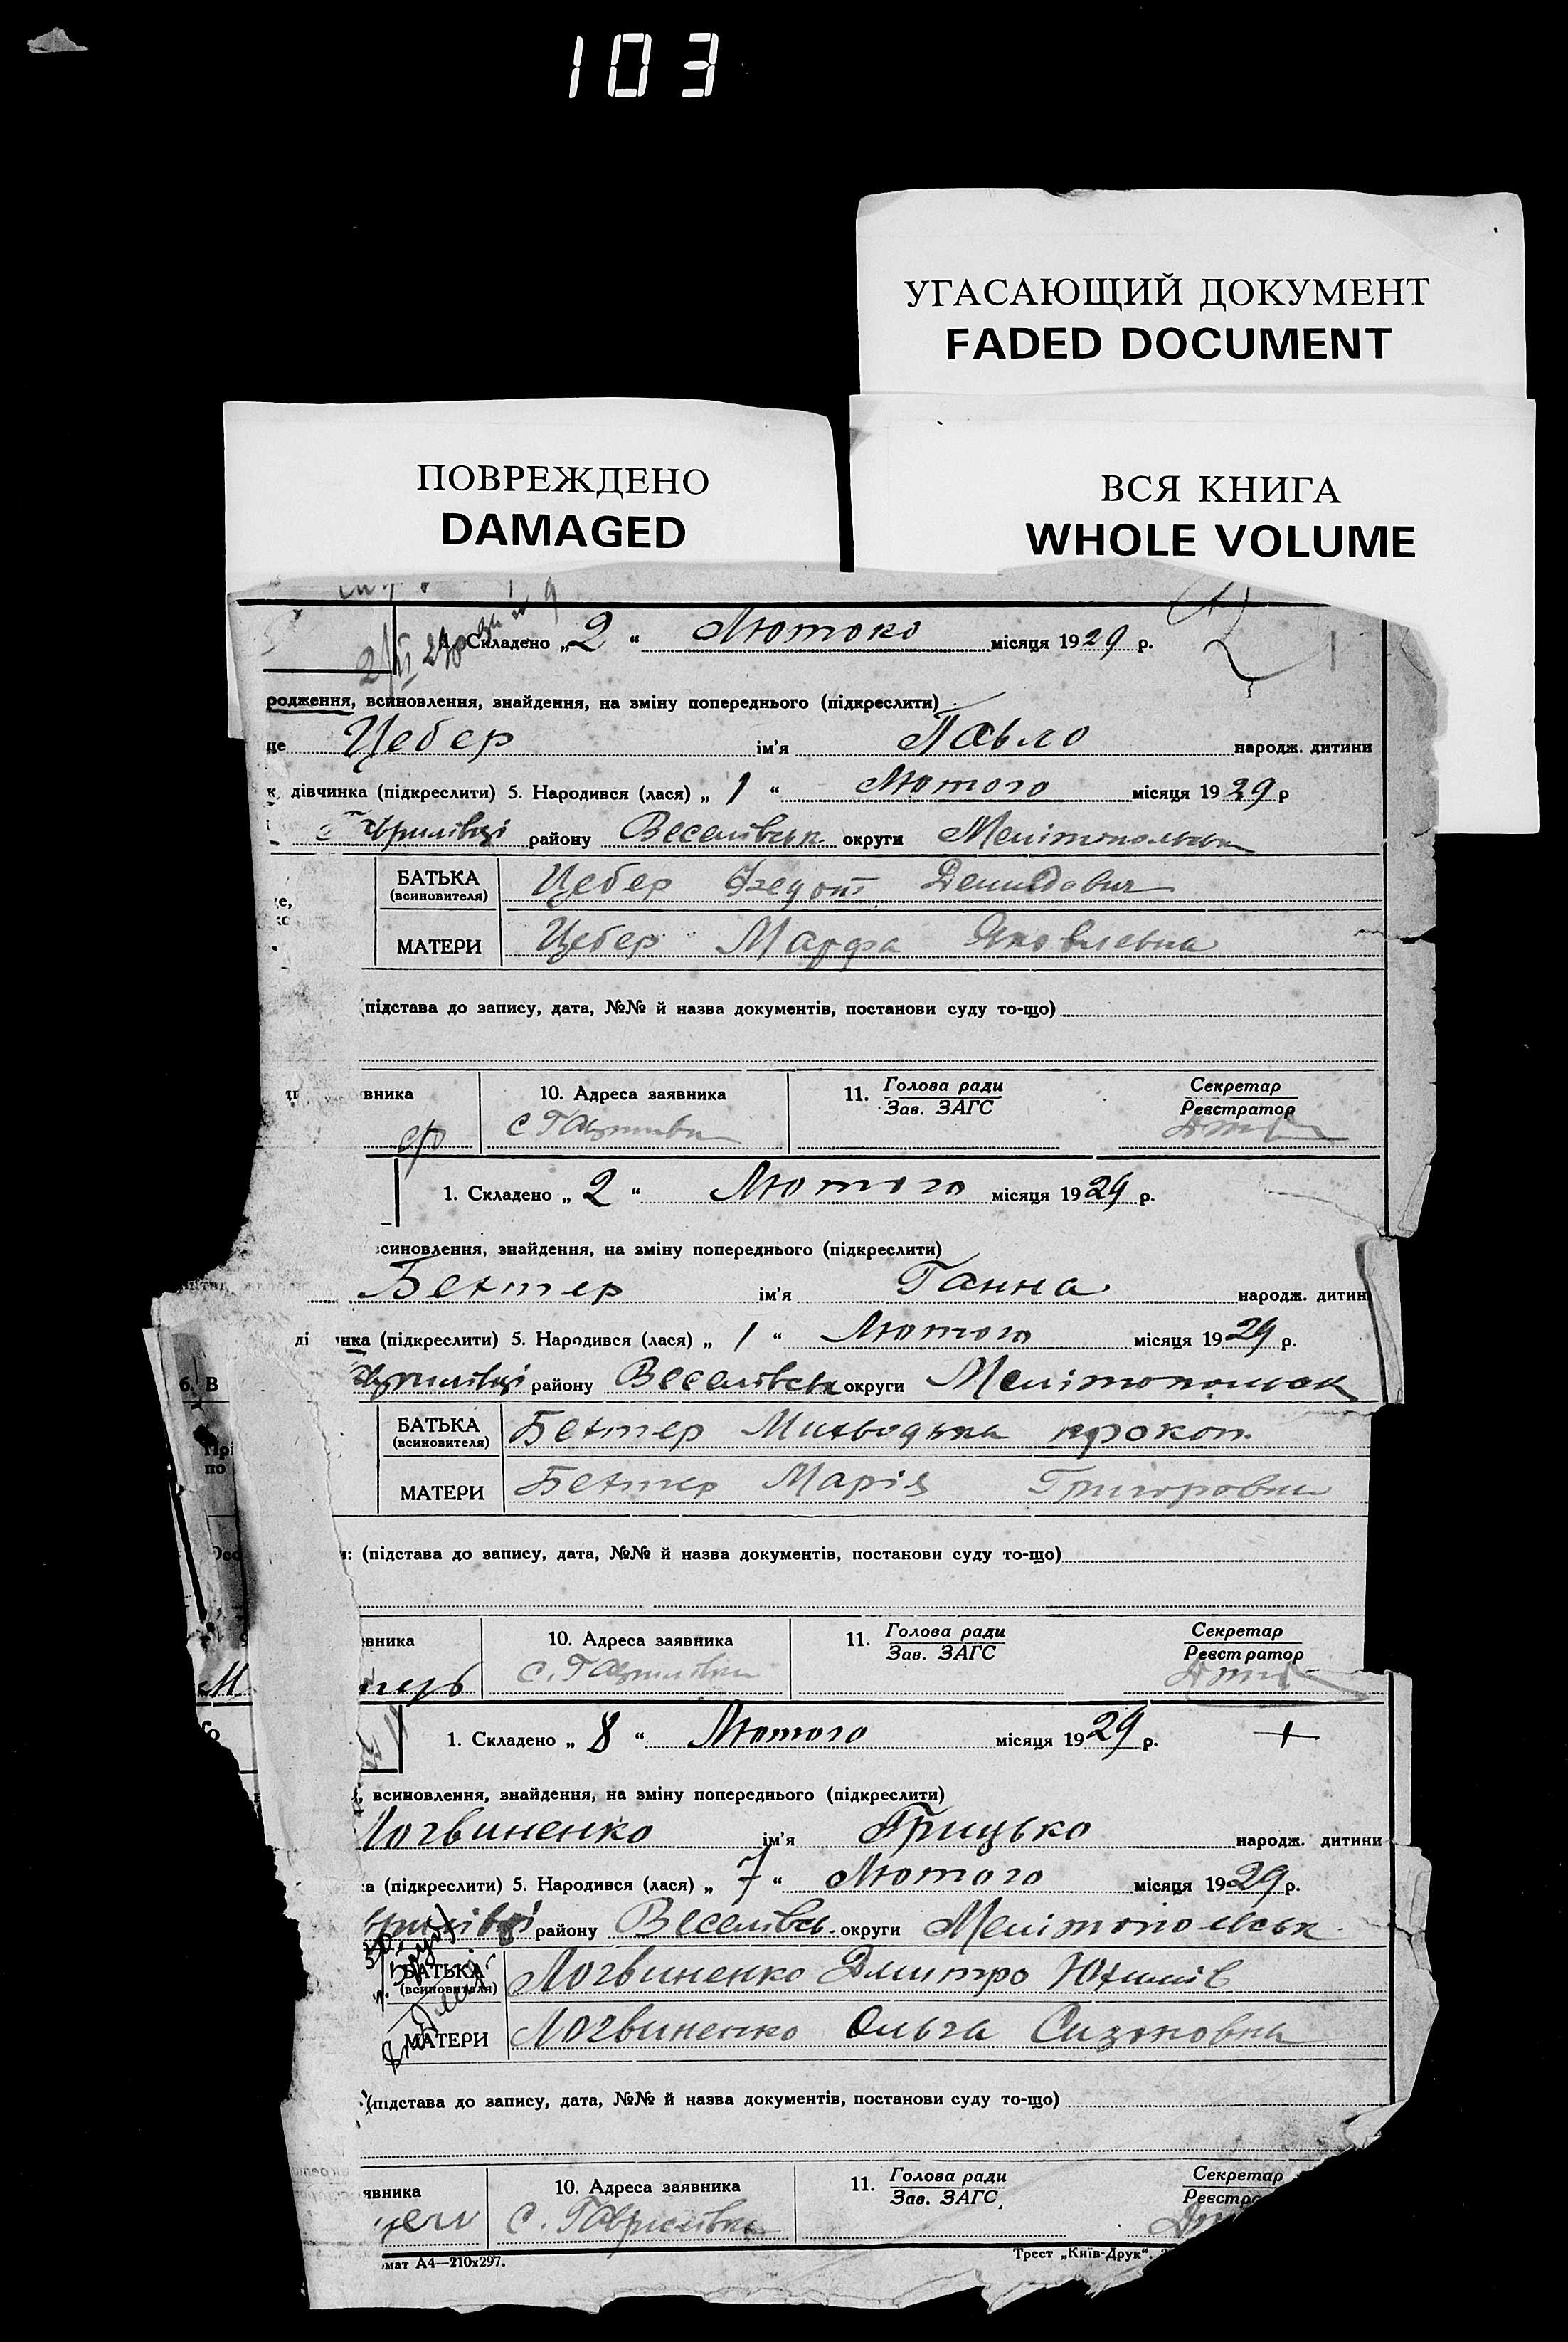 103
УГАСАЮЩИЙ ДОКУМЕНТ
FADED DOCUMENT
ПОВРЕЖДЕНО
DAMAGED
ВСЯ КНИГА
WHOLE VOLUME
1. Складено „ 2 “ Лютоко місяця 1929 р.
родження, всиновлення, знайдення, на зміну попереднього (підкреслити)
це Цебер ім'я Павло народж. дитини
к дівчинка (підкреслити) 5. Народився (лася) „ 1 “ Лютого місяця 1929 р
району Веселівськ округи
БАТЬКА Цебер Федот Демидович
(всиновителя)
МАТЕРИ Цебер Марфа Яковлевна
(підстава до запису, дата, №№ й назва документів, постанови суду то-що)
вника 10. Адреса заявника 11. Голова ради Секретар
Зав. ЗАГС Реєстратор
1. Складено „ 2 “ Лютого місяця 1929 р.
синовлення, знайдення, на зміну попереднього (підкреслити)
Бехтер ім'я Ганна народж. дитин
ді нка (підкреслити) 5. Народився (лася) „ 1 “ Лютого місяця 1929 р.
6. В району Веселівськ округи
БАТЬКА Бехтер прокоп.
(всиновителя)
по МАТЕРИ Бехтер Марія Григоровна
(підстава до запису, дата, №№ й назва документів, постанови суду то-що)
вника 10. Адреса заявника 11. Голова ради Секретар
Зав. ЗАГС Реєстратор
1. Складено „ 8 “ Лютого місяця 1929 р.
всиновлення, знайдення, на зміну попереднього (підкреслити)
Логвиненко ім'я Грицько народж. дитини
ка (підкреслити) 5. Народився (лася) „ 7 “ Лютого місяця 1929 р.
району Веселівсь. округи Мелітопольськ
БАТЬКА Логвиненко Дмитро Юхимів
(всиновителя)
МАТЕРИ Логвиненко Ольга
(підстава до запису, дата, №№ й назва документів, постанови суду то-що)
явника 10. Адреса заявника 11. Голова ради Секретар
с. Гаврилівка Зав. ЗАГС. Реєстра
мат А4—210х297. Трест „Київ-Друк“.